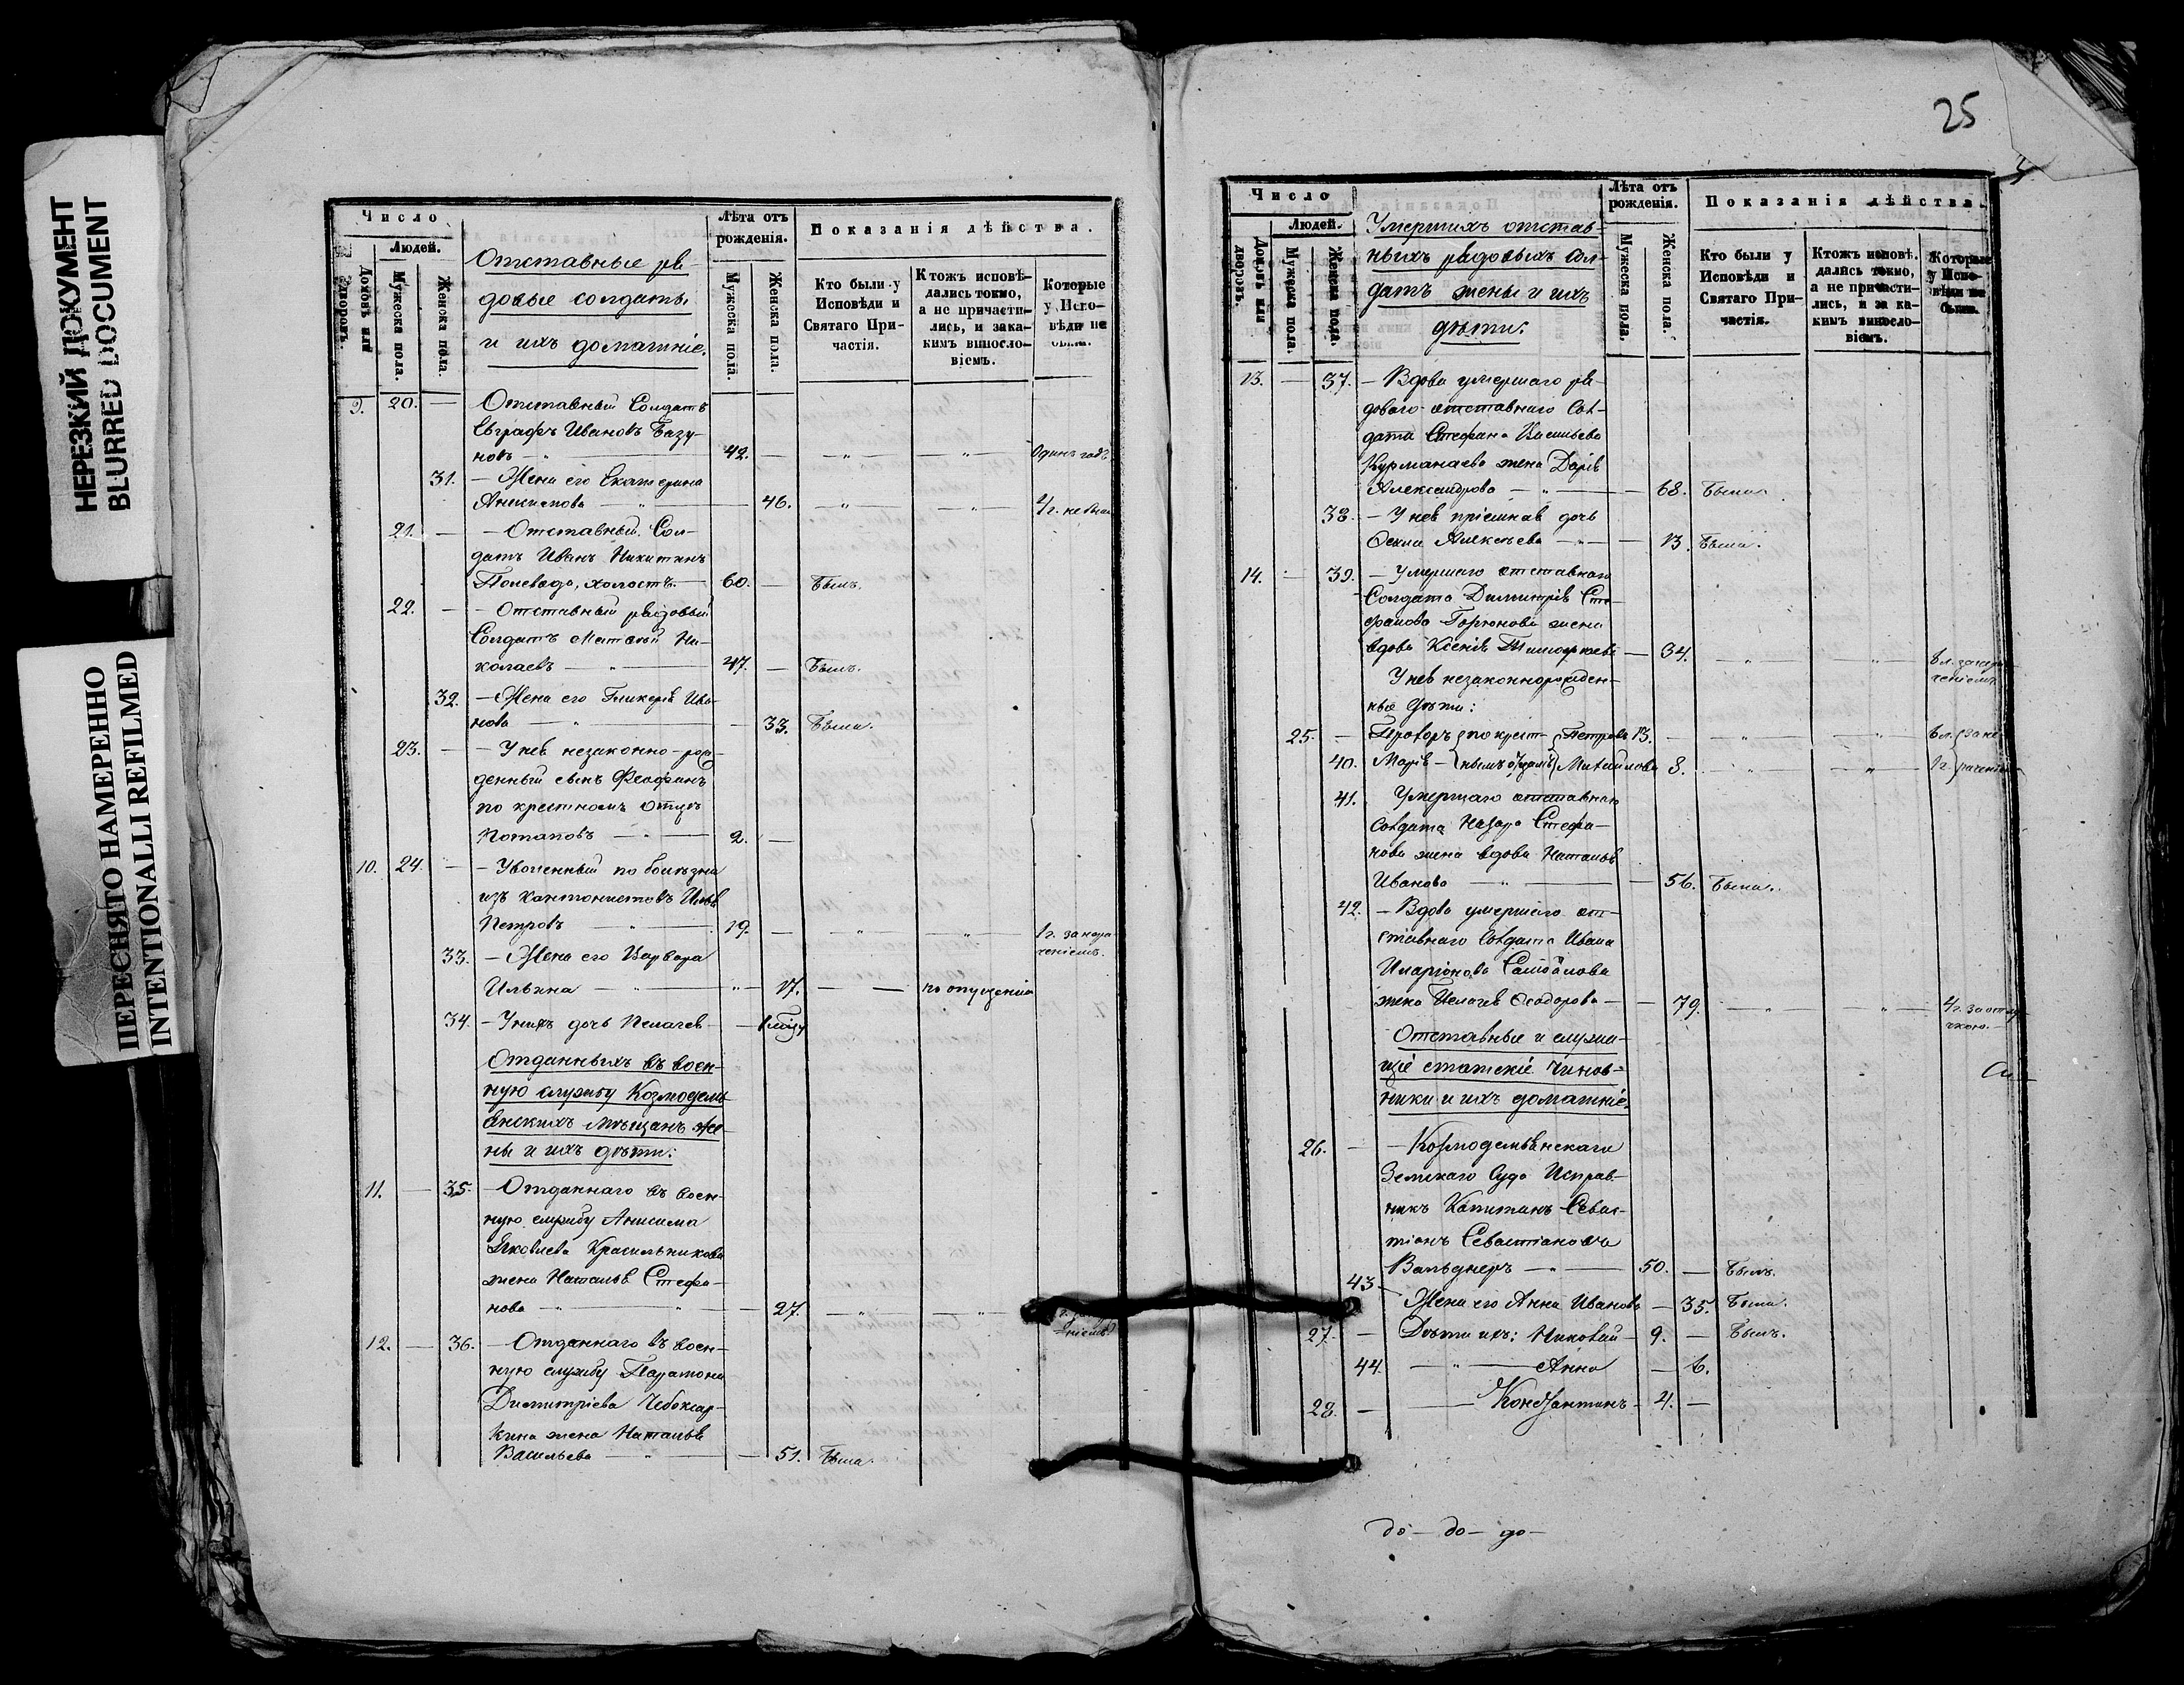 НЕРЕЗКИЙ ДОКУМЕНТ
BLURRED DOCUMENT
ПЕРЕСНЯТО НАМЕРЕННО
INTENTIONALLI REFILMED
Число
Людей.
Домовъ или дворовъ.
Мужеска пола.
Женска пола.
Отставные ря-
довые солдаты
и ихъ домашніе.
Лѣта отъ
рожденія.
Мужеска пола.
Женска пола.
Показанія дѣйства.
Кто были у
Исповѣди и
Святаго При-
частія.
Ктожъ исповѣ-
дались токмо,
а не причасти-
лись, и зака-
кимъ винosло-
віемъ.
Которые
у Испо-
вѣди не
были.
9. 20. — Отставный Солдатъ
Евграфъ Ивановъ Базу-
новъ — 42. — Одинъ годъ
31. — Жена его Екатерина
46.
21. — Отставный Сол-
датъ Иванъ Никитинъ
холостъ. — 60. — Былъ.
22. — Отставный рядовый
Солдатъ Матвей Ни-
колаевъ — 47. — Былъ.
32. — Жена его Гликерія Ива-
нова — 33. Была.
23. — У нея незаконно-рож-
денный сынъ Феофанъ
по крестномъ отцѣ
Потаповъ — 2. —
10. 24. — Уволенный по болѣзни
изъ кантонистовъ Илья
Петровъ — 19. — 1 г. за нера-
ченіемъ.
33. — Жена его Варвара
Ильина — 17. — по опущенію
34. — У нихъ дочь Пелагея —
Отданныхъ въ воен-
ную службу Козмодемь-
янскихъ мѣщанъ же-
ны и ихъ дѣти:
11. — 35. — Отданнаго въ воен-
ную службу Анисима
Яковлева Красильникова
жена Наталья Стефа-
нова — 27. —
12. — 36. — Отданнаго въ воен-
ную службу Парамона
Димитріева Чебоксар-
кина жена Наталья
Васильева — 51. Была.
25
Число
Людей.
Домовъ или дворовъ.
Мужеска пола.
Женска пола.
Умершихъ отстав-
ныхъ рядовыхъ сол-
датъ жены и ихъ
дѣти:
Лѣта отъ
рожденія.
Мужеска пола.
Женска пола.
Показанія дѣйства.
Кто были у
Исповѣди и
Святаго При-
частія.
Ктожъ исповѣ-
дались токмо,
а не причасти-
лись, и за ка-
кимъ винosло-
віемъ.
Которые
у Испо-
вѣди не
были.
13. — 37. — Вдова умершаго ря-
доваго отставнаго Сол-
дата Стефана Васильева
Курманаева жена Дарія
Александрова — 68. Была.
38. — У нея пріемная дочь
Алексѣева — 13. Была.
14. — 39. — Умершаго отставнаго
Солдата Димитрія Сте-
фанова Горюнова жена
вдова Ксенія Тимофѣева — 34. —
У нея незаконнорожден-
ные дѣти:
25. — Проворъ по крест- Петровъ 13. —
40. Марія — нымъ отцамъ Михайлова 8.
41. Умершаго отставнаго
Солдата Назара Стефа-
нова жена вдова Наталья
Иванова — 56. Была.
42. — Вдова умершаго от-
ставнаго Солдата Ивана
Иларіонова
жена Пелагея Феодорова — 79. — 4 г. за отлу-
чкою.
Отставные и служа-
щіе статскіе чинов-
ники и ихъ домашніе.
26. — Козмодемьянскаго
Земскаго Суда Исправ-
никъ Капитанъ Севас-
тіанъ Севастіановъ
Вальднеръ — 50. — Былъ.
43 — Жена его Анна Иванова — 35. Была.
27. — Дѣти ихъ: Николай — 9. — Былъ.
44. — Анна — 6.
28. — Константинъ — 4. —
до — до — до —